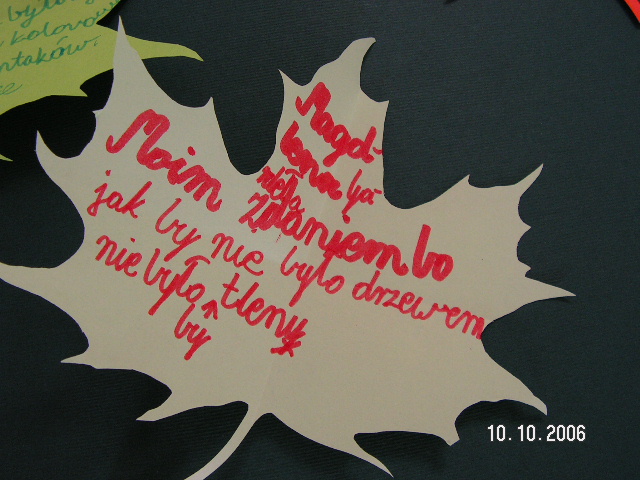 było
kolorow
ntaków.
Magda-
lena ba-
Moim zdaniem bo
jak by nie było drzewem
nie było tleny
by
10.10.2006